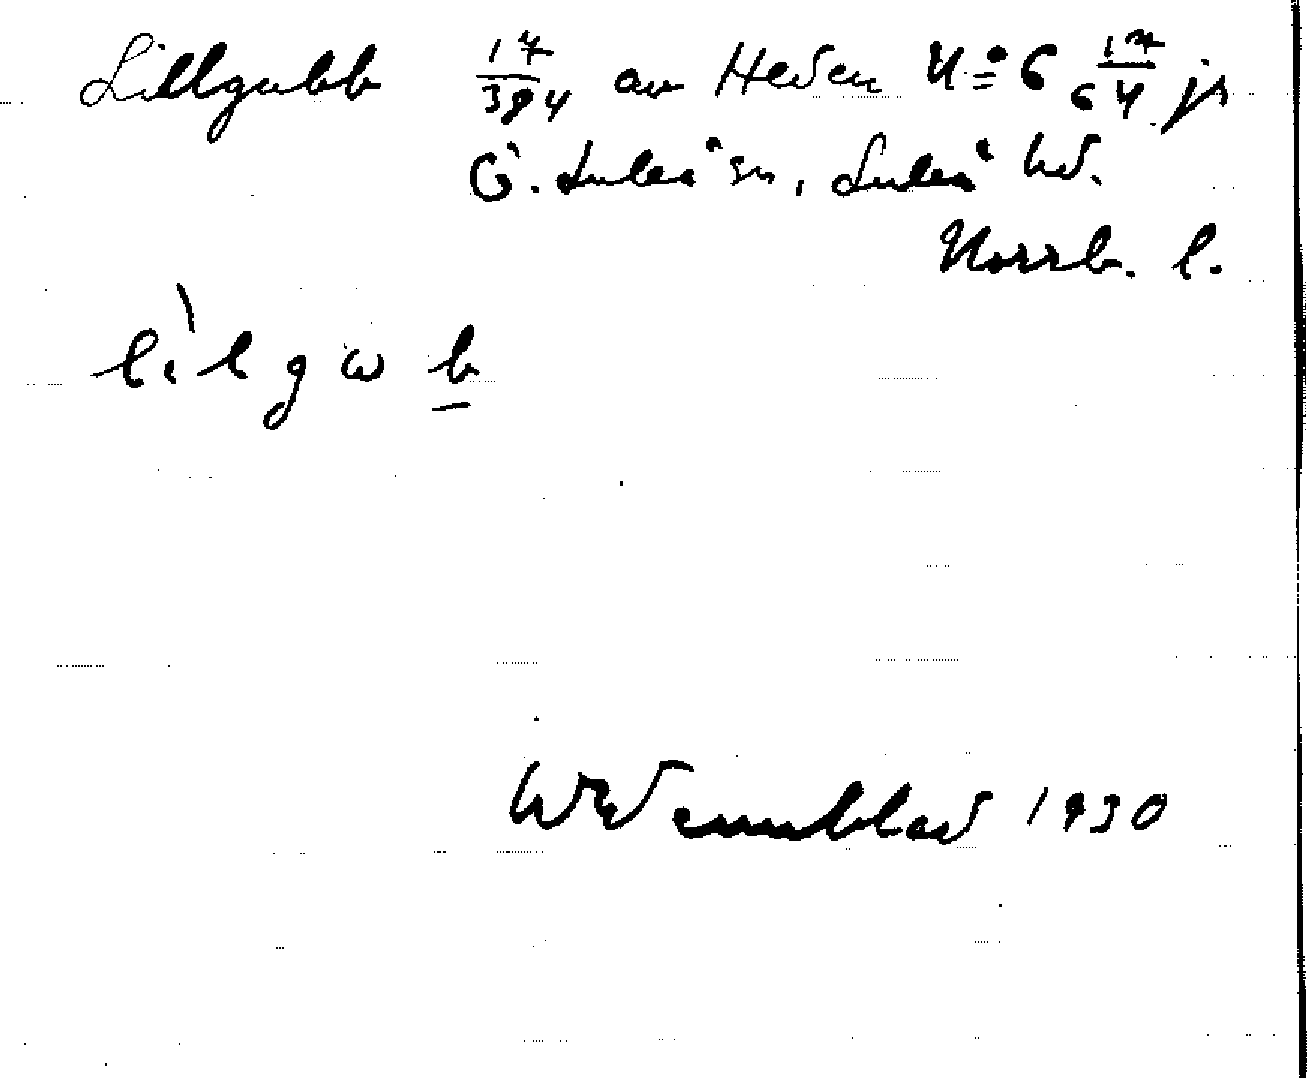 Lillgubb 17/384 av Heden N:o 6 17/64 js
G. Luleå sn, Luleå hd.
Norrb. l.
lìlgωb
Wennblad 1930